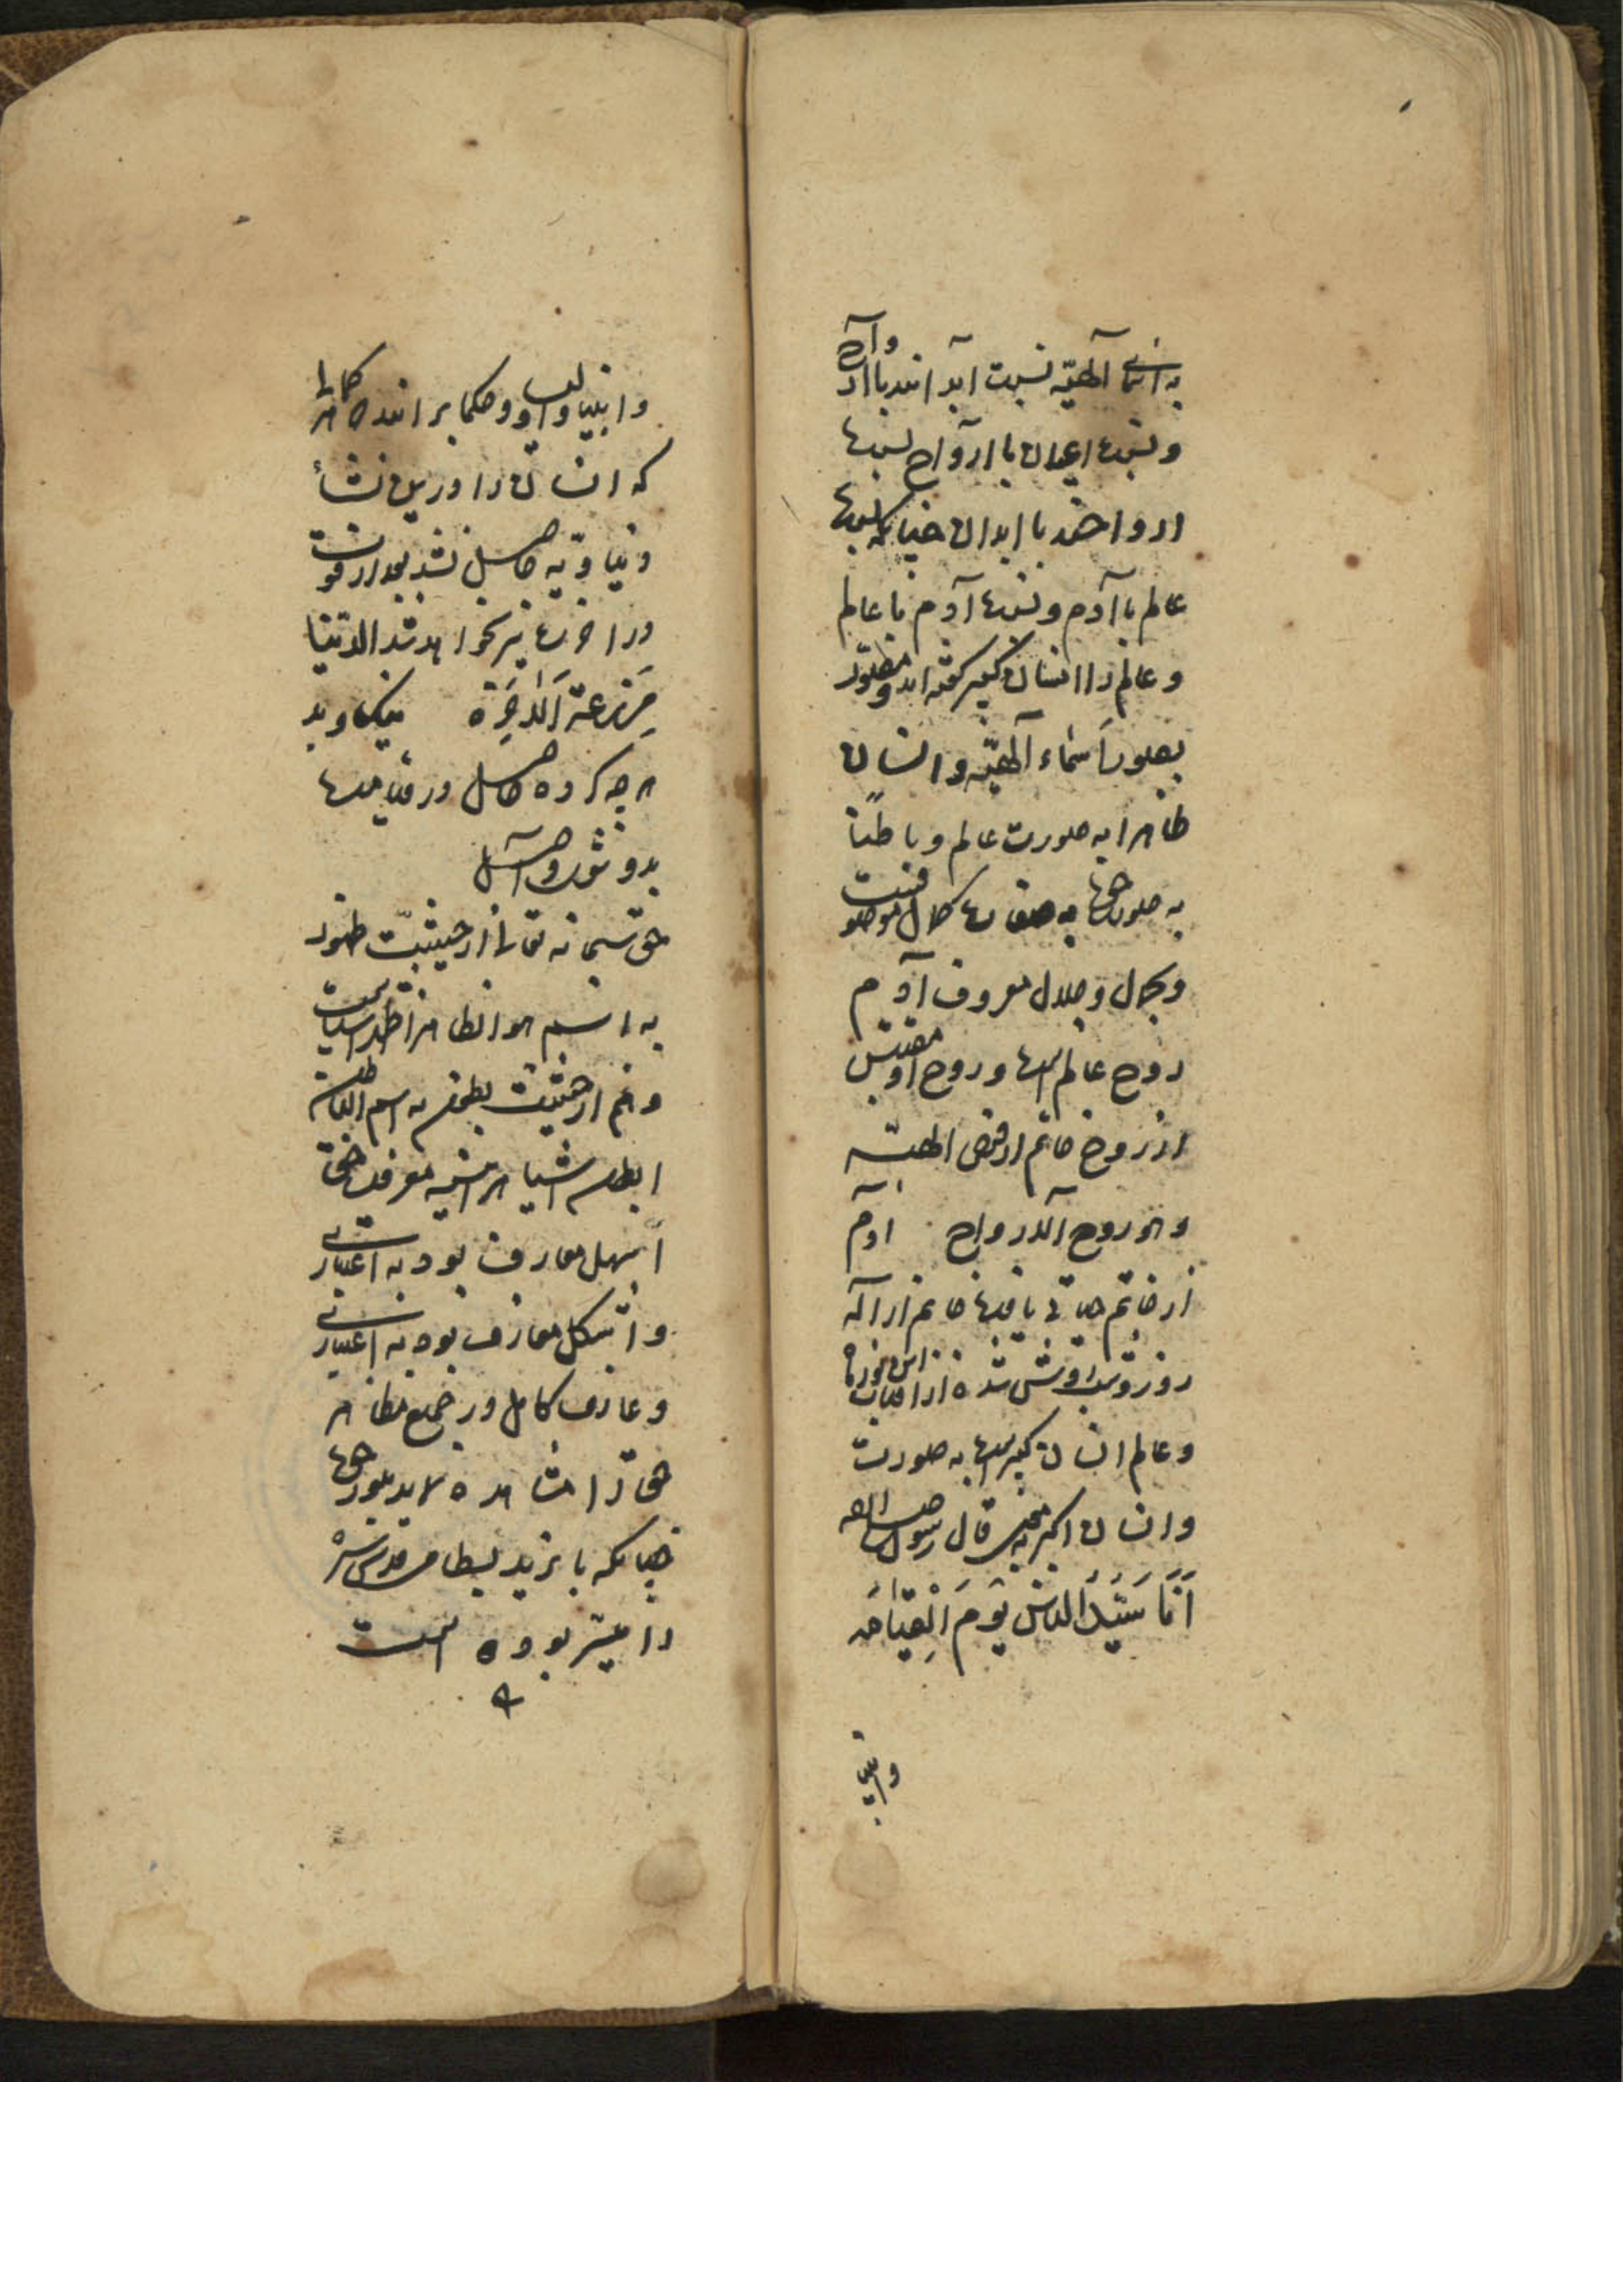 به اسمای آلهیّه نسبت ابدانند با ارواح
و نسبت اعیان با ارواح نسبت
ارواحند با ابدان چنانکه نسبت
عالم با آدم و نسبت آدم با عالم
و عالم را انسان کبیر گفته‌اند و مصوّر
بصور اسماء آلهیّه و انسان
ظاهرا به صورت عالم و باطنًا
به صورت حق به صفات کمال موصوفست
و بجمال و جلال معروف آدم
روح عالم است و روح او مقتبس
از روح خاتم از فیض الهیّه
و هو روح الارواح آدم
از خاتم حیاتی یافت خاتم از اله
روز روشن روشن شده از آفتاب این نور ما
و عالم انسان کبیر است به صورت
و انسان اکبر به معنی قال رسول الله
اَنَا سَیِّدُ الناسِ یَومَ الْقِیٰامَه
وانبیا
وانبیا و اولیا و حکما برانند که هر کمالی
که انسان را درین نشأ
دنیاویه حاصل نشد بعد از فوت
در آخرت نیز نخواهد شد الدّنیا
مَزرعة اَلاٰخِرَة میکاوید
هر چه کرده حاصل در قیامت
بدو شود واصل
حق سبحانه تعالی از حیثیّت ظهور
به اسم هو الظاهر اظهر اشیاست
و هم از حیثیّت بطون به اسم الباطن
ابطن اشیا هر آینه معرفت حق
اسهل معارف بود به اعتباری
و اشکل معارف بود به اعتباری
و عارف کامل در جمیع مظاهر
حق را مشاهده نماید بنور حق
چنانکه بایزید بسطامی قدس سره
را میسّر بوده است